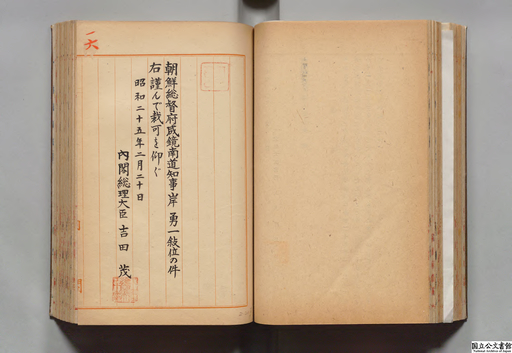 一六
朝鮮総督府咸鏡南道知事岸勇一敍位の件
右謹んで裁可を仰ぐ
昭和二十五年二月二十日
内閣総理大臣 吉田茂
国立公文書館
National Archives of Japan